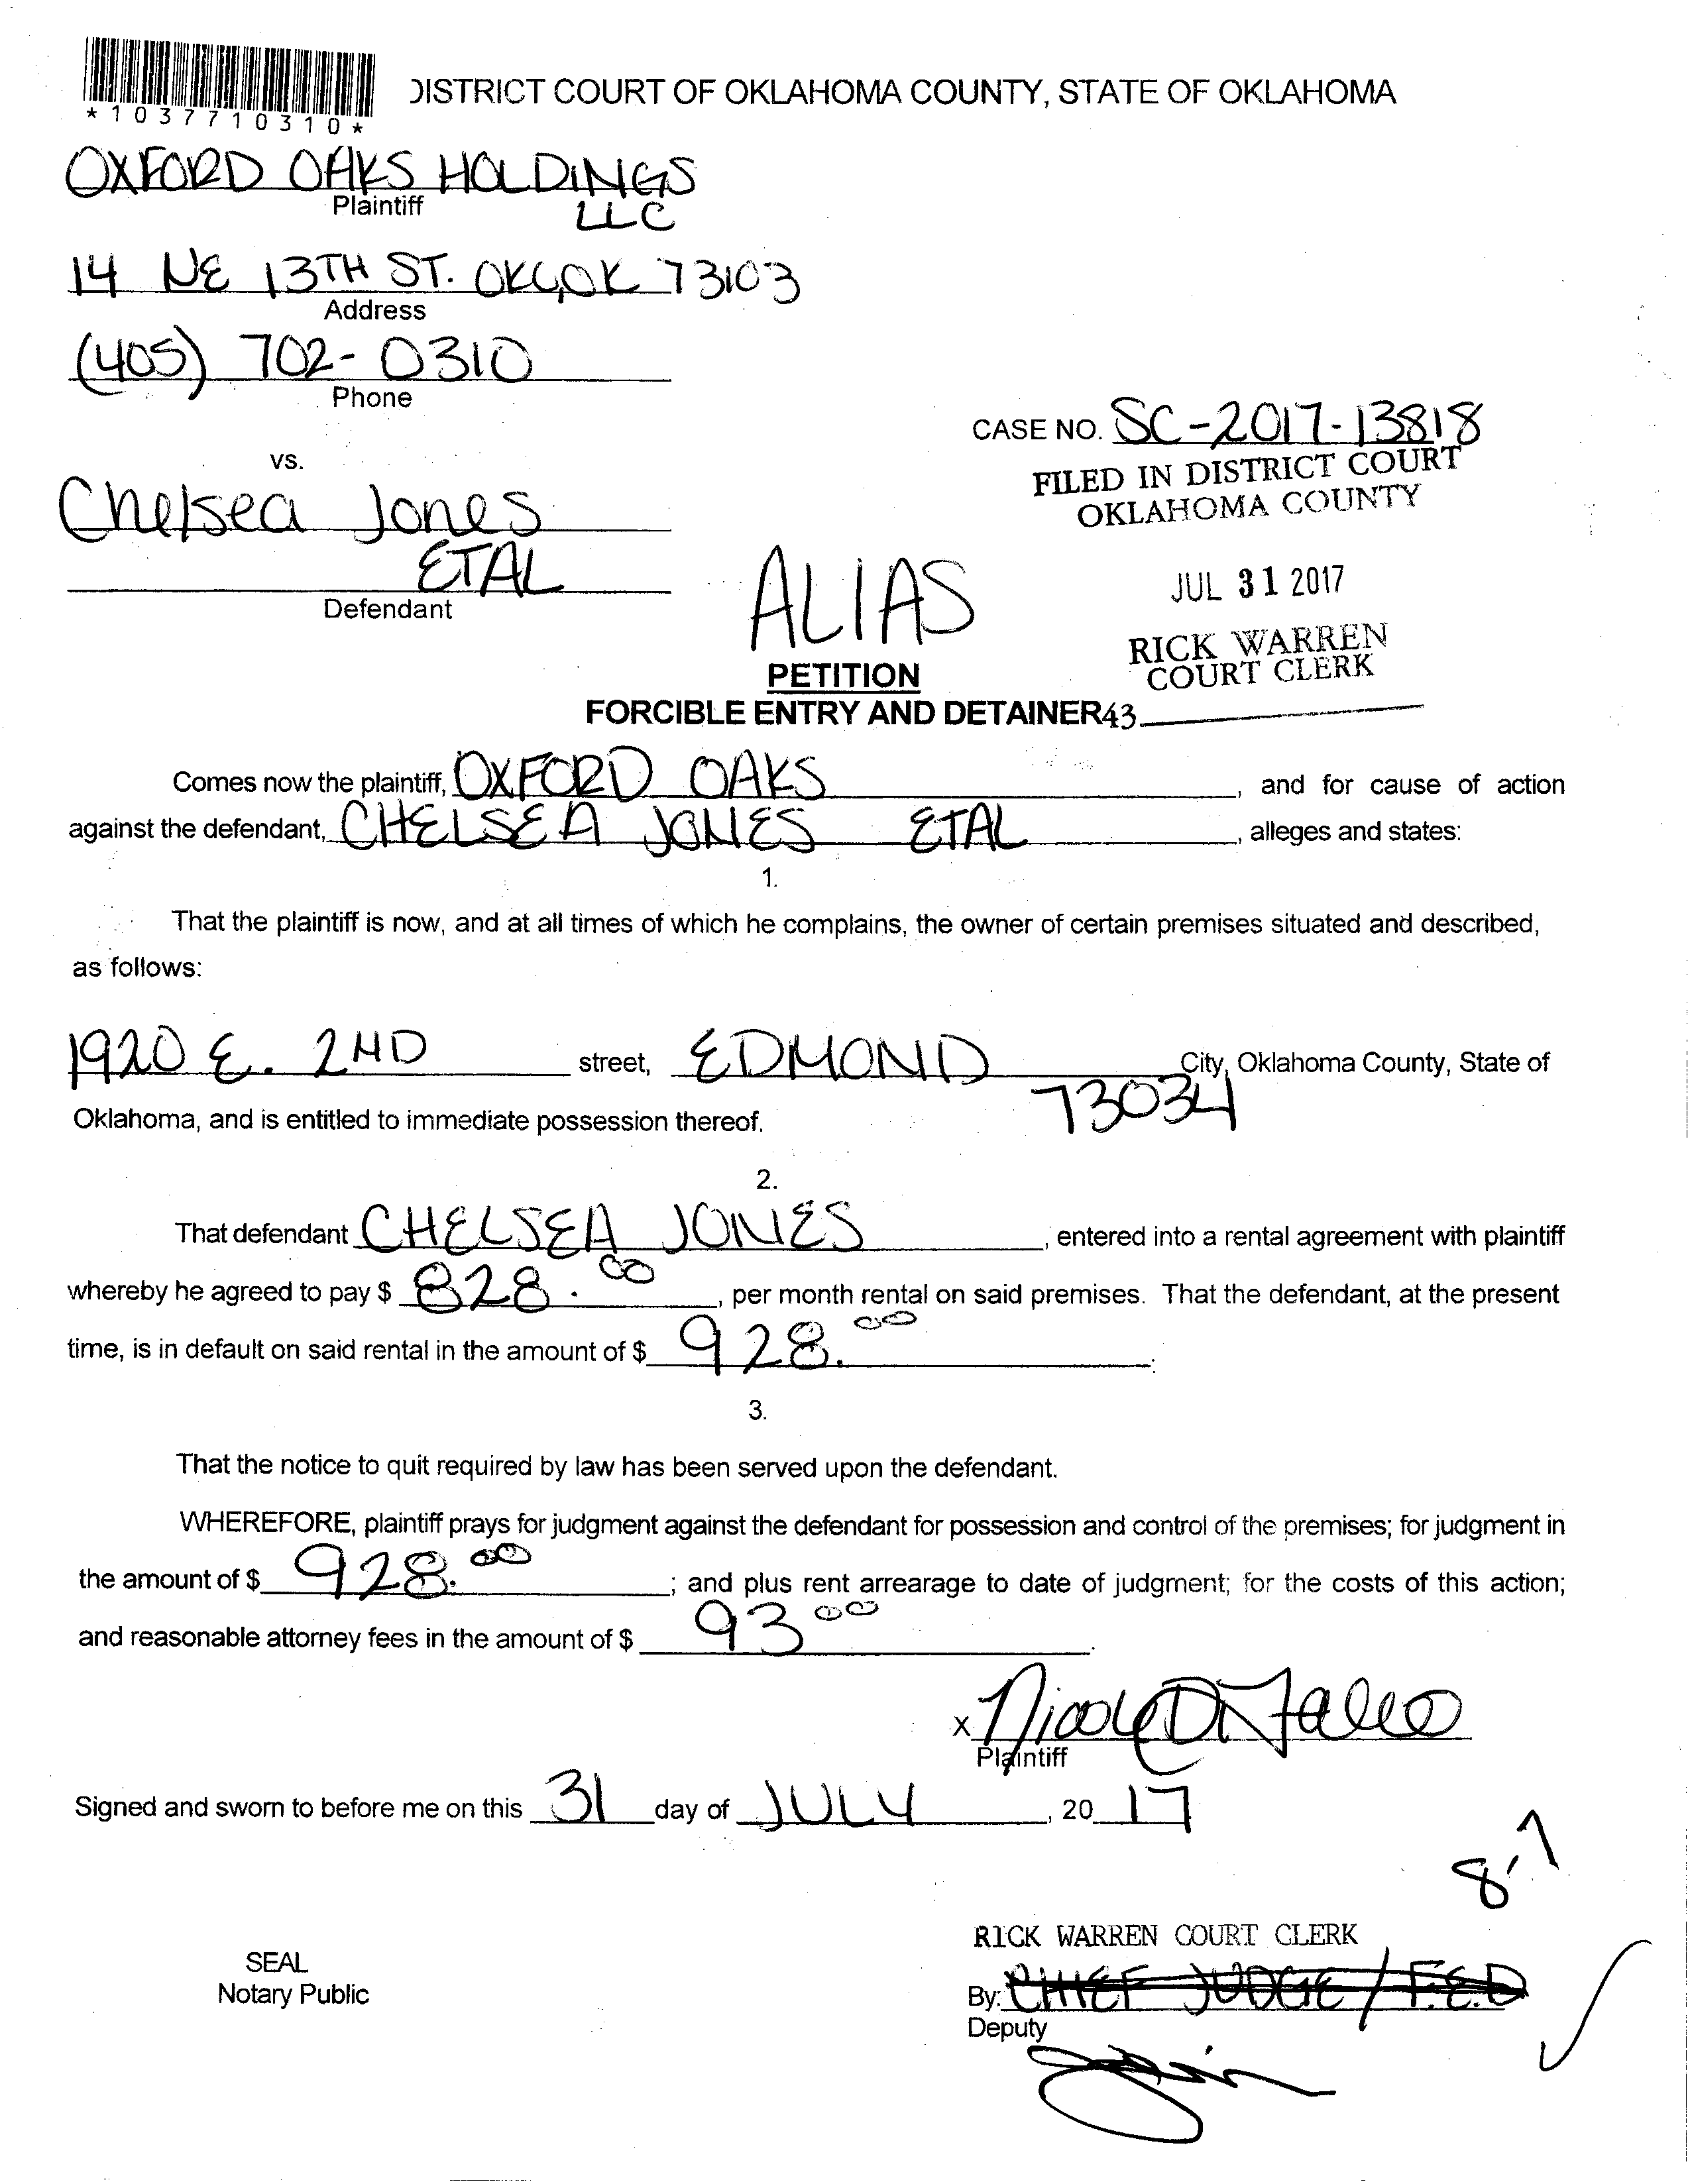 *1037710310*
DISTRICT COURT OF OKLAHOMA COUNTY, STATE OF OKLAHOMA
OXFORD OAKS HOLDINGS
Plaintiff
LLC
14 NE 13TH ST. OKC, OK 73103
Address
(405) 702-0310
Phone
CASE NO. SC-2017-13818
vs.
FILED IN DISTRICT COURT
OKLAHOMA COUNTY
Chelsea Jones
ETAL
Defendant
JUL 31 2017
ALIAS
RICK WARREN
COURT CLERK
PETITION
FORCIBLE ENTRY AND DETAINER
43
Comes now the plaintiff, OXFORD OAKS, and for cause of action
against the defendant, CHELSEA JONES ETAL, alleges and states:
1.
That the plaintiff is now, and at all times of which he complains, the owner of certain premises situated and described,
as follows:
1920 E. 2ND street, EDMOND City, Oklahoma County, State of
73034
Oklahoma, and is entitled to immediate possession thereof.
2.
That defendant CHELSEA JONES, entered into a rental agreement with plaintiff
whereby he agreed to pay $ 828.00, per month rental on said premises. That the defendant, at the present
time, is in default on said rental in the amount of $ 928.00.
3.
That the notice to quit required by law has been served upon the defendant.
WHEREFORE, plaintiff prays for judgment against the defendant for possession and control of the premises; for judgment in
the amount of $ 928.00; and plus rent arrearage to date of judgment; for the costs of this action;
and reasonable attorney fees in the amount of $ 93 00.
X
Plaintiff
Signed and sworn to before me on this 31 day of JULY, 20 17
8-7
RICK WARREN COURT CLERK
SEAL
Notary Public
By: CHIEF JUDGE / F.E.D
Deputy